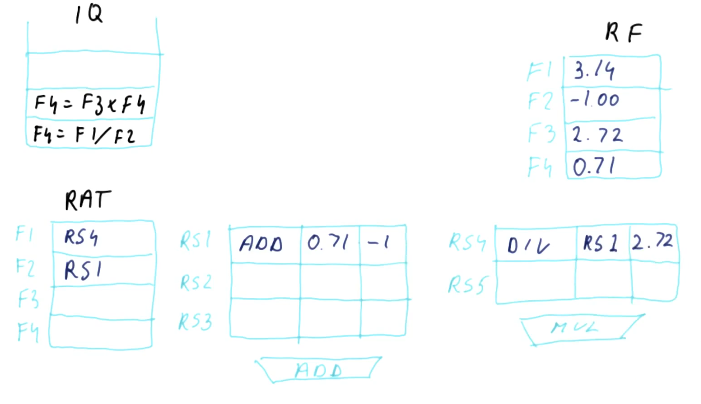 IQ
F4 = F3 x F4
F4 = F1/F2
RF
F1 3.14
F2 -1.00
F3 2.72
F4 0.71
RAT
F1 RS4
F2 RS1
F3
F4
RS1 ADD 0.71 -1
RS2
RS3
ADD
RS4 DIV RS1 2.72
RS5
MUL